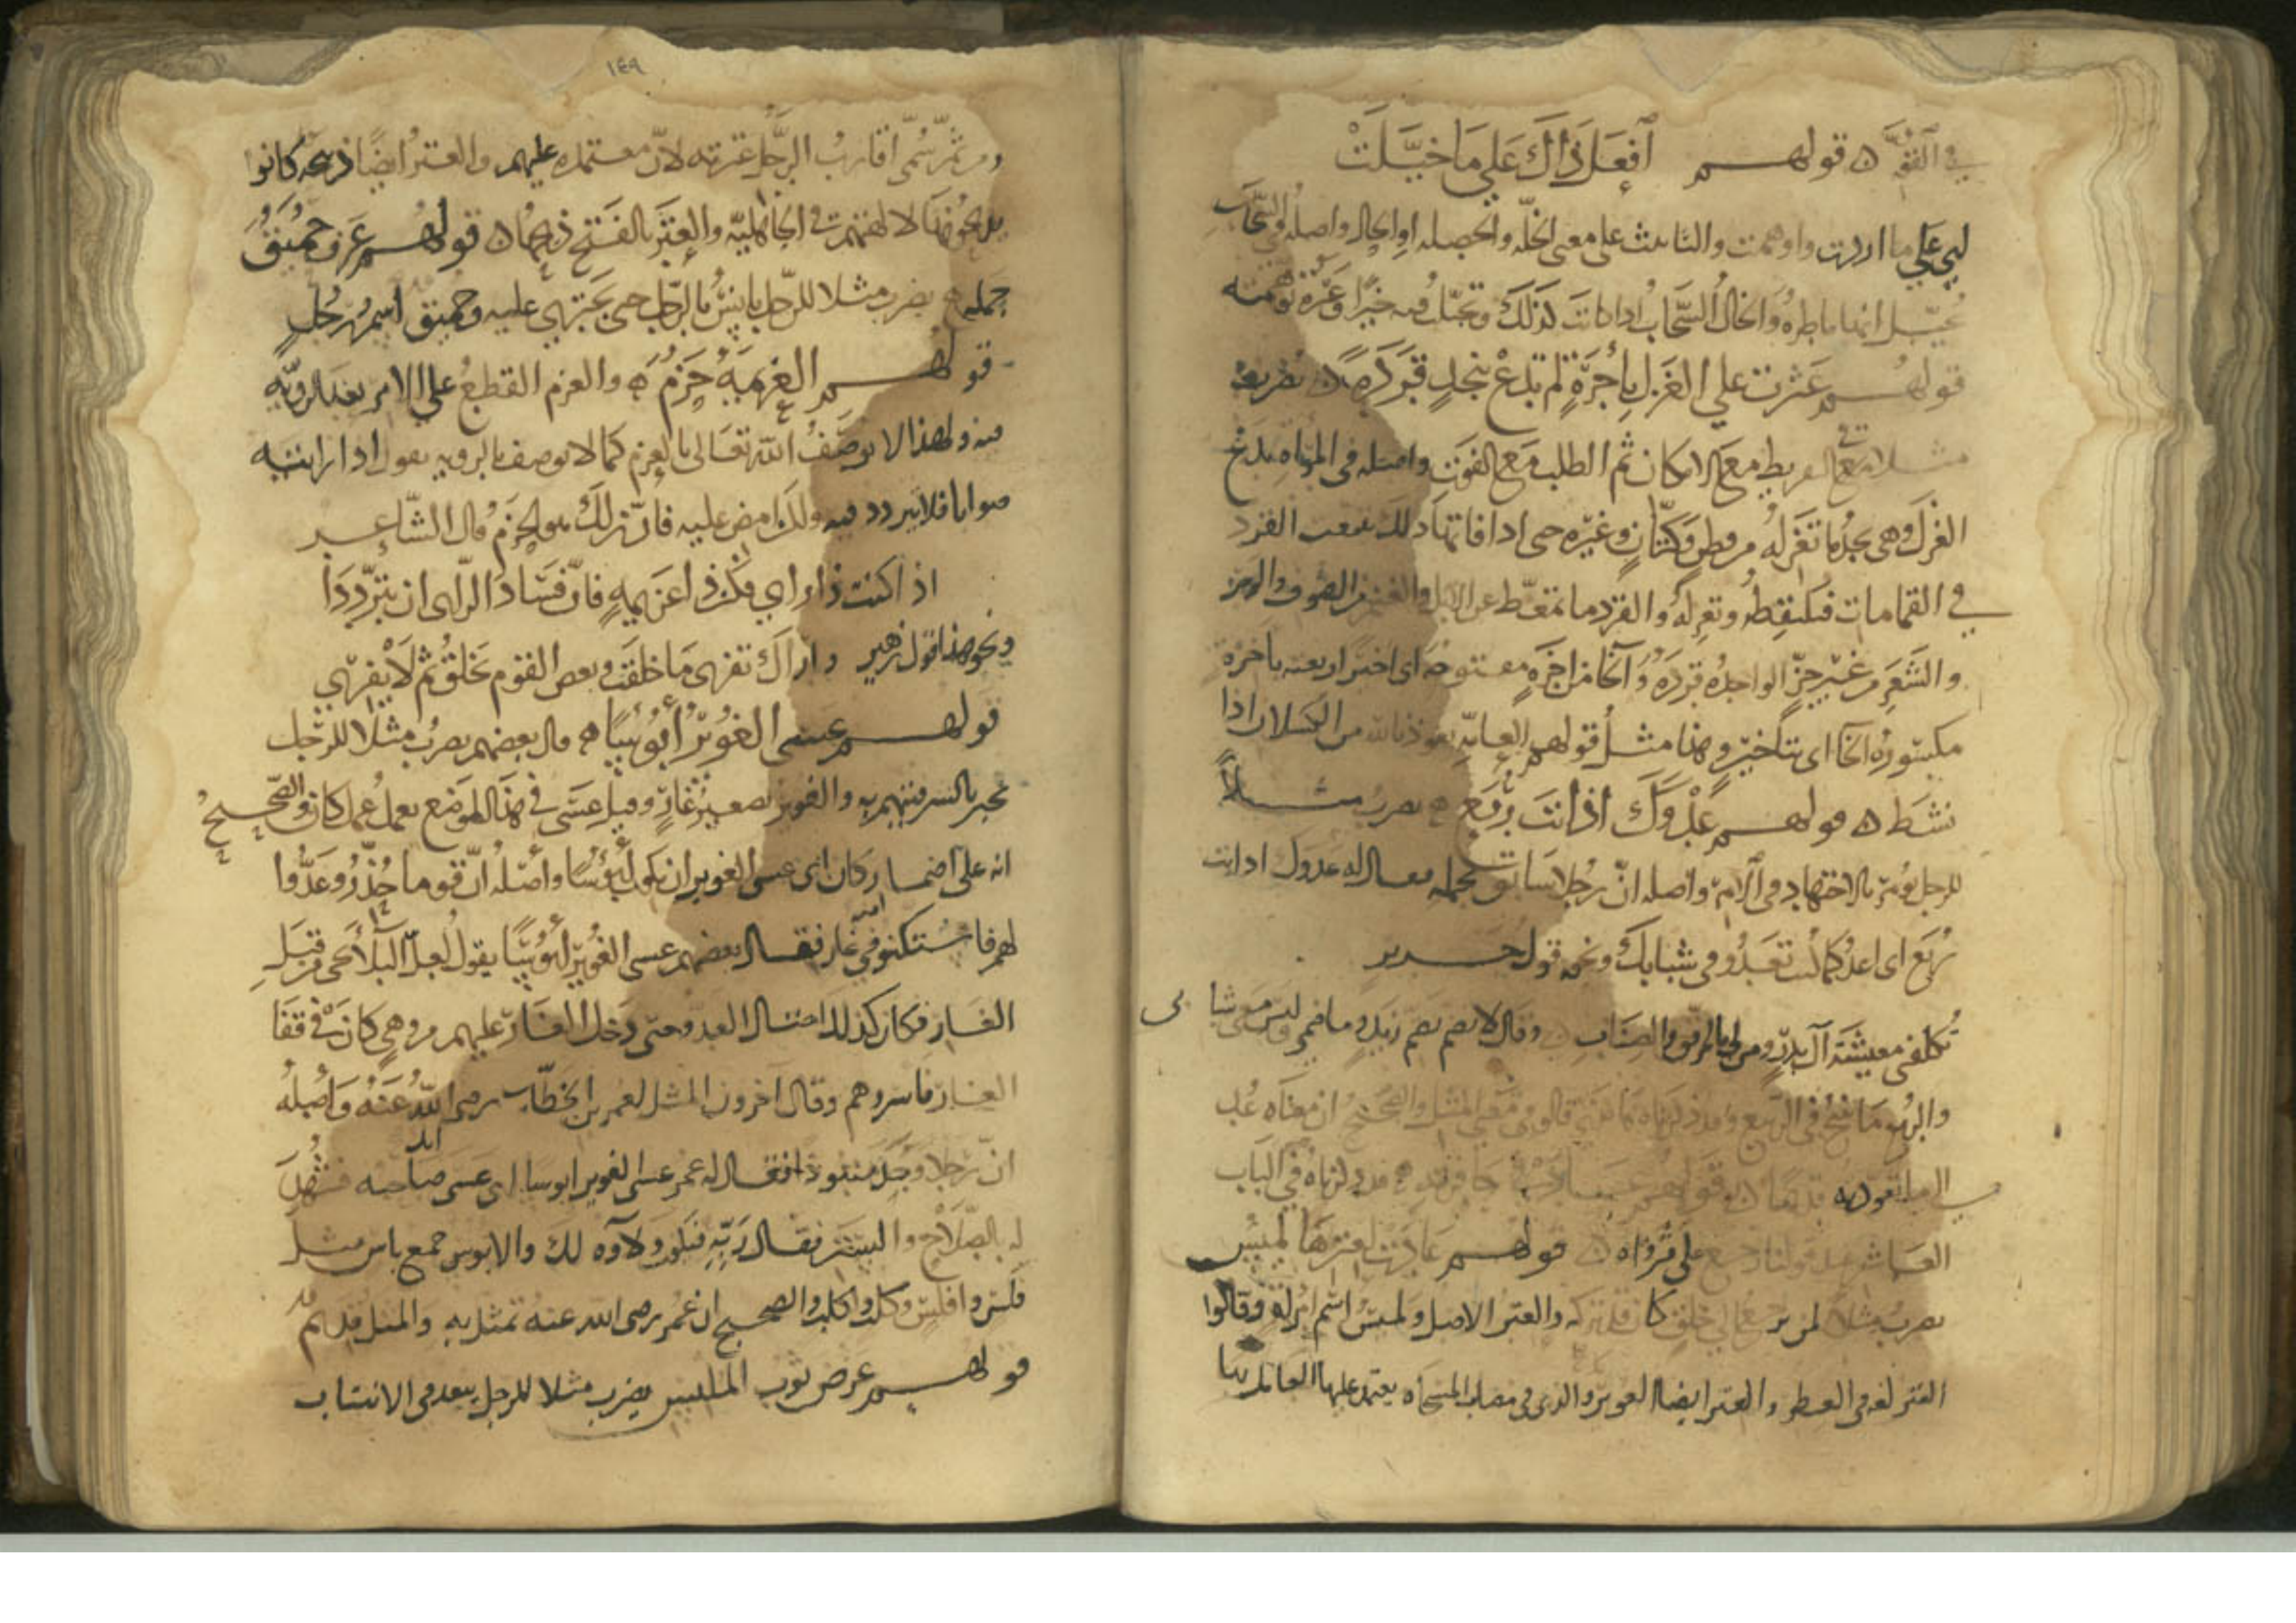 في القوة ۞ قولهم افعل ذاك على ما خيلت
اي على ما اردت واوهمت والتانيث على معنى الخلة والخصلة او الحال واصله في السحاب
تخيل انها ماطرة والخال السحاب اذا كانت كذلك وتخيلت فيه خيرا وغيره توهمته
قولهم عثرت على الغزل باخرة لم تدع بنجد قردة ۞ يضرب
مثلا مع التفريط مع الامكان ثم الطلب مع الفوت واصله في المراة تدع
الغزل وهي تجد ما تغزله من قطن وكتان وغيره حتى اذا فاتها ذلك تتبعت القرد
في القمامات فتلتقطه وتغزله والقرد ما تمعط عن الابل والغنم من الصوف والوبر
والشعر من غير جز الواحدة قردة واخامن اخرة مفتوحة اي اخيرا وبعته باخرة
مكسورة الخا اي بتاخير وهذا مثل قولهم العامة نعوذ بالله من الكسلان اذا
نشط ۞ قولهم عدوك اذ انت ربع يضرب مثلا
للرجل يؤمر بالاجتهاد في الامر واصله ان رجلا سابق بجمله فقال له عدوك اذ انت
ربع اي اعد كما كنت تعدو في شبابك ونحوه قول جرير
تكلفني معيشة آل زيد ومن لي بالمرقق والصناب وقال لا تضم زيد وما ضمي وليس معي شبابي
والربع ما نتج في الربيع وقد ذكرناه قالوا في معنى المثل والصحيح ان معناه عد
الى ما تعودته قولهم قد ذكرناه في الباب
العاشر عند قولنا رجع على قرواه ۞ قولهم عادت لعترها لميس
يضرب مثلا لمن يرجع الى خلق كان قد تركه والعتر الاصل ولميس اسم امراة وقالوا
العتر لغة في العطر والعتر ايضا العويد والذي في نصاب المسحاة يعتمد عليها الحافر بها
١٤٩
ومن ثم سمي اقارب الرجل عترته لان معتمده عليهم والعتر ايضا ذبيحة كانوا
يذبحونها لالهتهم في الجاهلية والعتر بالفتح ذبحها ۞ قولهم عرف حميق
جمله يضرب مثلا للرجل يانس بالرجل حتى يجترئ عليه وحميق اسم رجل
قولهم العزيمة حزم ۞ والعزم القطع على الامر بعد الروية
فيه ولهذا لا يوصف الله تعالى بالعزم كما لا يوصف بالروية يقول اذا رايته
صوابا فلا تتردد فيه ولكن امض عليه فان ذلك هو الحزم قال الشاعر
اذا كنت ذا راي فكن ذا عزيمة فان فساد الراي ان تترددا
ونحو هذا قول زهير واراك تفري ما خلقت وبعض القوم يخلق ثم لا يفري
قولهم عسى الغوير ابؤسا ۞ قال بعضهم يضرب مثلا للرجل
يخبر بالشر فيتهم به والغوير تصغير غار وقيل عسى في هذا الموضع يعمل عمل كان والصحيح
انه على اضمار كان اي عسى الغوير ان يكون ابؤسا واصله ان قوما حذروا عدوا
لهم فاستكنوا منه في غار فقال بعضهم عسى الغوير ابؤسا يقول لعل البلاء يجي من قبل
الغار فكان كذلك احتال العدو حتى دخل الغار عليهم من وهي كان في قفا
الغار فاسروهم وقال آخرون المثل لعمر بن الخطاب رضي الله عنه واصله
ان رجلا وجد منبوذا فقال له عمر عسى الغوير ابوسا اي عسى صاحبه فشهد
له بالصلاح والستر فقال ربه فيكون ولاوه لك والابوس جمع باس مثل
فلس وافلس وكلب واكلب والصحيح ان عمر رضي الله عنه تمثل به والمثل قديم
قولهم عرض ثوب الملبس يضرب مثلا للرجل يبعد في الانتساب